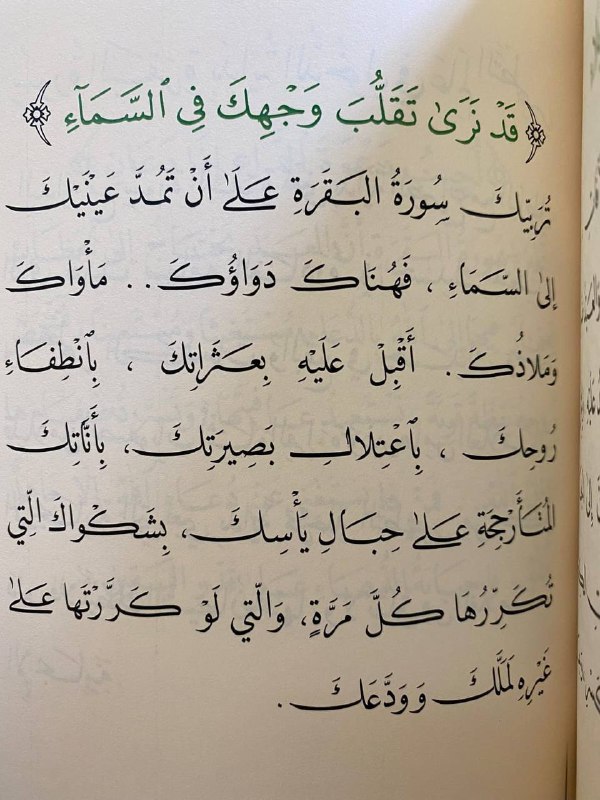 ﴿قَدْ نَرَىٰ تَقَلُّبَ وَجْهِكَ فِي ٱلسَّمَآءِ﴾
تُرَبِّيكَ سُورَةُ البَقَرَةِ عَلَىٰ أَنْ تَمُدَّ عَيْنَيْكَ
إِلىٰ السَّمَاءِ ، فَهُنَاكَ دَوَاؤُكَ.. مَأْوَاكَ
وَمَلَاذُكَ. أَقْبِلْ عَلَيْهِ بِعَثَرَاتِكَ ، بِٱنْطِفَاءِ
رُوحِكَ ، بِٱعْتِلَالِ بَصِيرَتِكَ، بِأَنَّاتِكَ
المُتَأَرْجِحَةِ عَلىٰ حِبَالِ يَأْسِكَ، بِشَكْوَاكَ الَّتِي
تُكَرِّرُهَا كُلَّ مَرَّةٍ، وَالَّتِي لَوْ كَرَّرْتَهَا عَلىٰ
غَيْرِهِ لَمَلَّكَ وَوَدَّعَكَ .